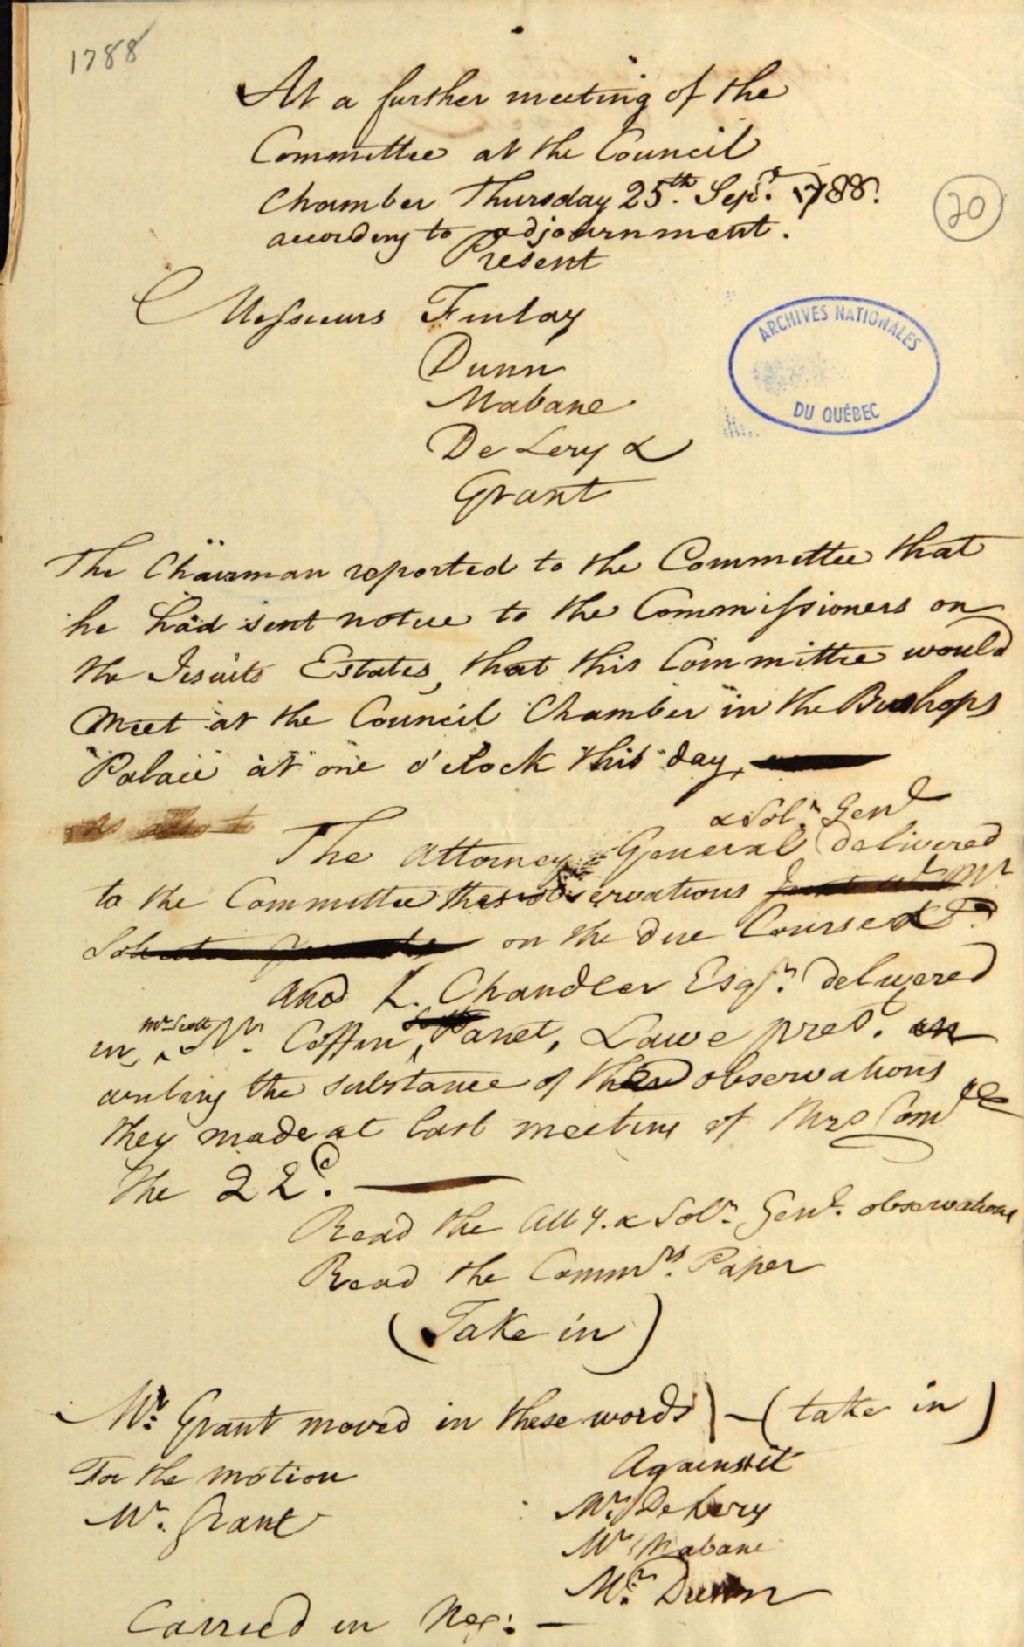 1788
At a further meeting of the
Committee at the Council
Chamber Thursday 25th. Sepr. 1788.
according to adjournment.
20
Present
Messieurs Finlay
Dunn
Mabane
De Lery &
Grant
ARCHIVES NATIONALES
DU QUÉBEC
The Chairman reported to the Committee that
he had sent notice to the Commissioners on
the Jesuits Estates, that this Committee would
meet at the Council Chamber in the Bishops
Palace at one o'clock this day,
& Solr. Genl
The Attorney General delivered
to the Committee their observations
on the due Course &ca.
And K. Chandler Esqr. delivered
in, Mr Scott Mr. Coffin, Panet, Lawe pred. in
writing the substance of the observations
they made at last meeting of this Comee
the 22d.
Read the Atty. & Solr. Genl. observations
Read the Commrs. Paper
(Take in)
Mr. Grant moved in these words) - (take in)
For the motion Against it
Mr. Grant Mr. De Lery
Mr Mabane
Mr. Dunn
Carried in Neg: -